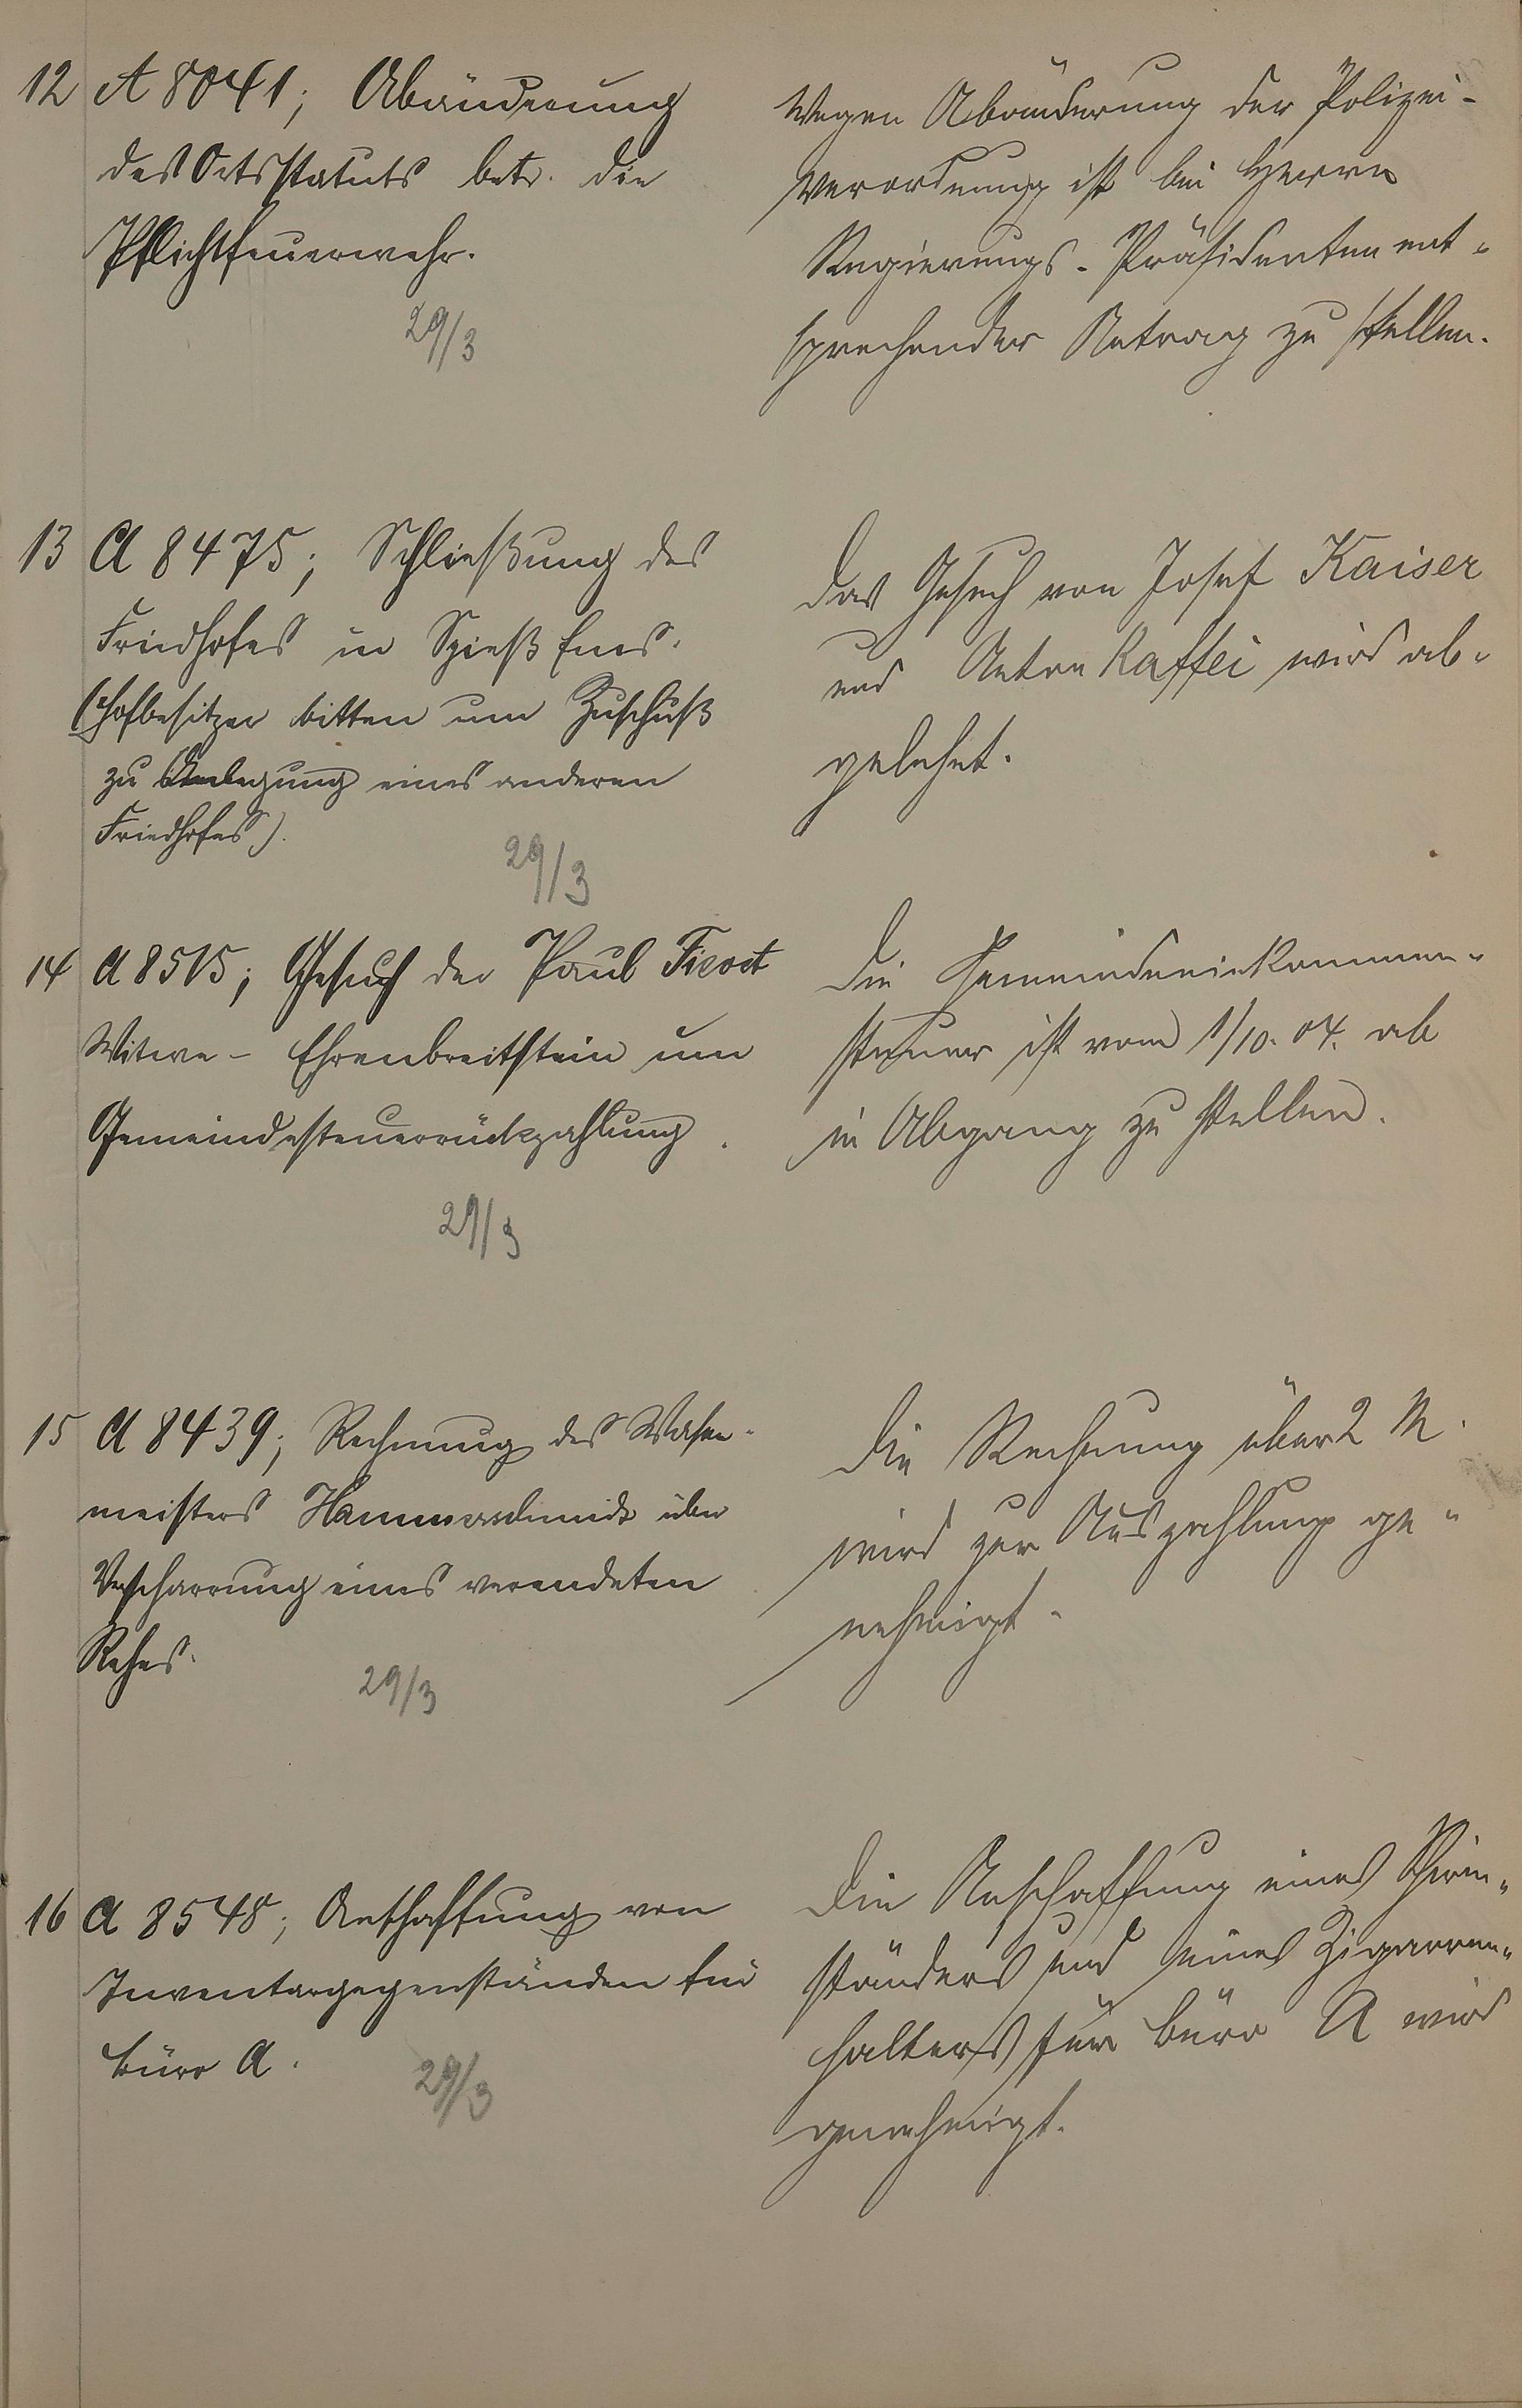 12 A 8041; Abänderung
des Ortsstatuts betr. die
Pflichtfeuerwehr.
29/3
Wegen Abänderung der Polizei-
verordnung ist bei Herrn
Regierungs-Präsidenten ent-
sprechender Antrag zu stellen.
13 A 8475; Schließung des
Friedhofes in Spieß Ems.
(Hofbesitzer bitten um Zuschuß
zu Anlegung eines anderen
Friedhofes).
29/3
Das Gesuch von Josef Kaiser
und Anton Kaffei wird ab-
gelehnt.
14 A 8515; Gesuch der Paul
Witwe - Ehrenbreitstein um
Gemeindesteuerrückzahlung.
29/3
Die Gemeindeeinkommen-
steuer ist vom 1/10. 04. ab
in Abgang zu stellen.
15 A 8439; Rechnung des Wasen-
meisters Hammerschmidt über
Verscharrung eines verendeten
Rehes.
29/3
Die Rechnung über 2 M.
wird zur Auszahlung ge-
nehmigt.
16 A 8548; Anschaffung von
Inventargegenständen für
Büro A.
29/3
Die Anschaffung eines Schirm-
ständers und eines Zigarren-
halters für Büro A wird
genehmigt.